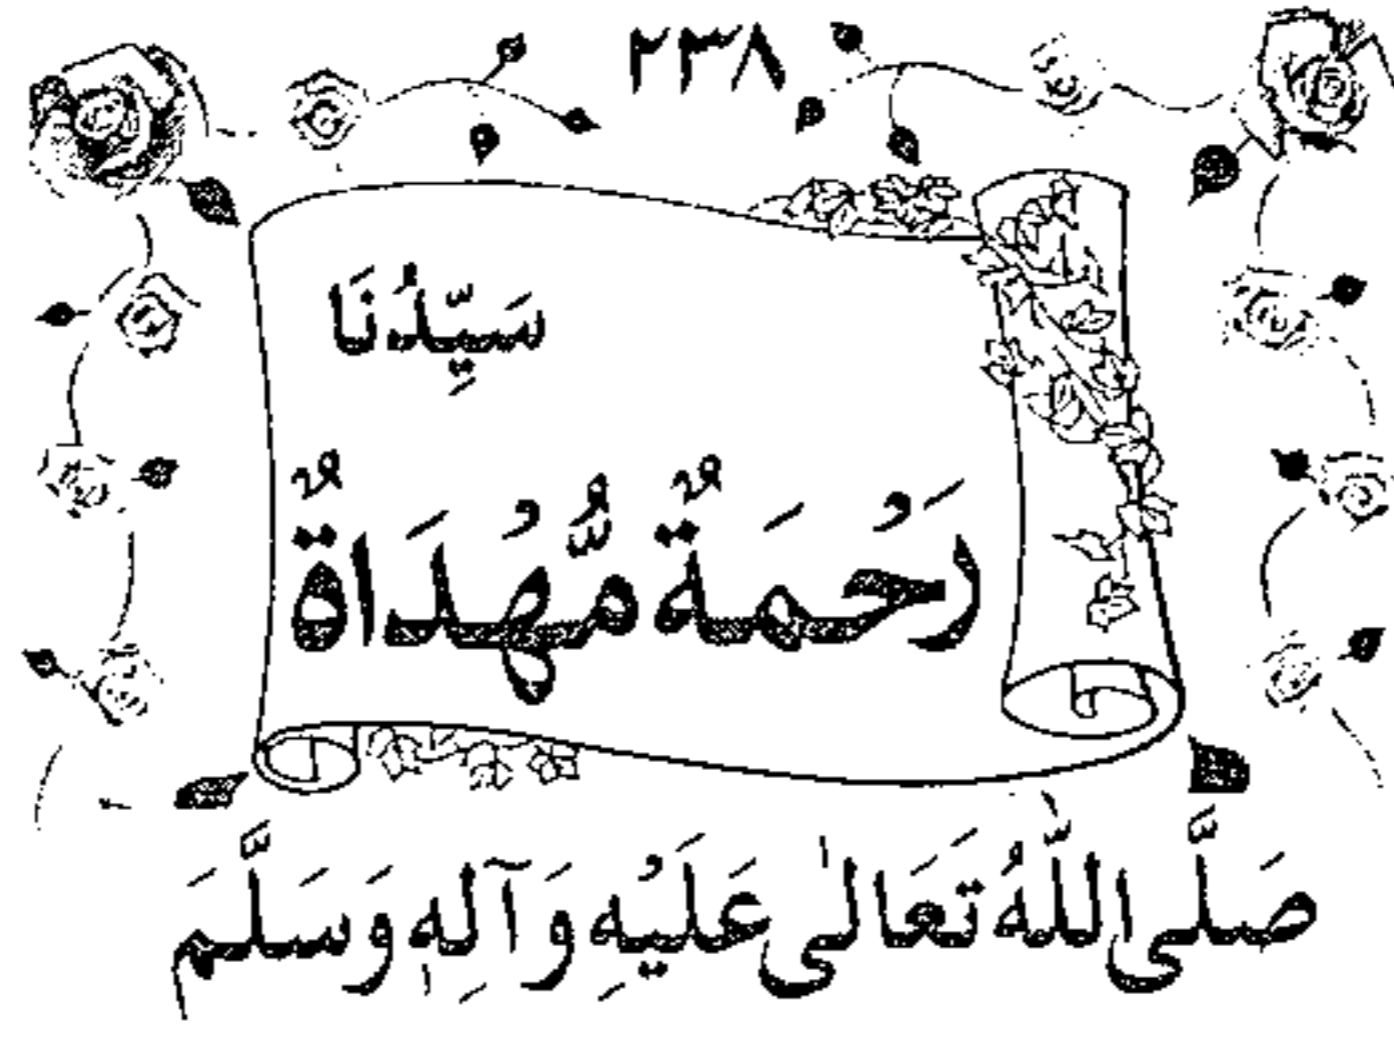 ٢٣٨
سَيِّدُنَا
رَحْمَةٌ مُّهْدَاةٌ
صَلَّى اللّٰهُ تَعَالٰى عَلَيْهِ وَآلِهٖ وَسَلَّمَ